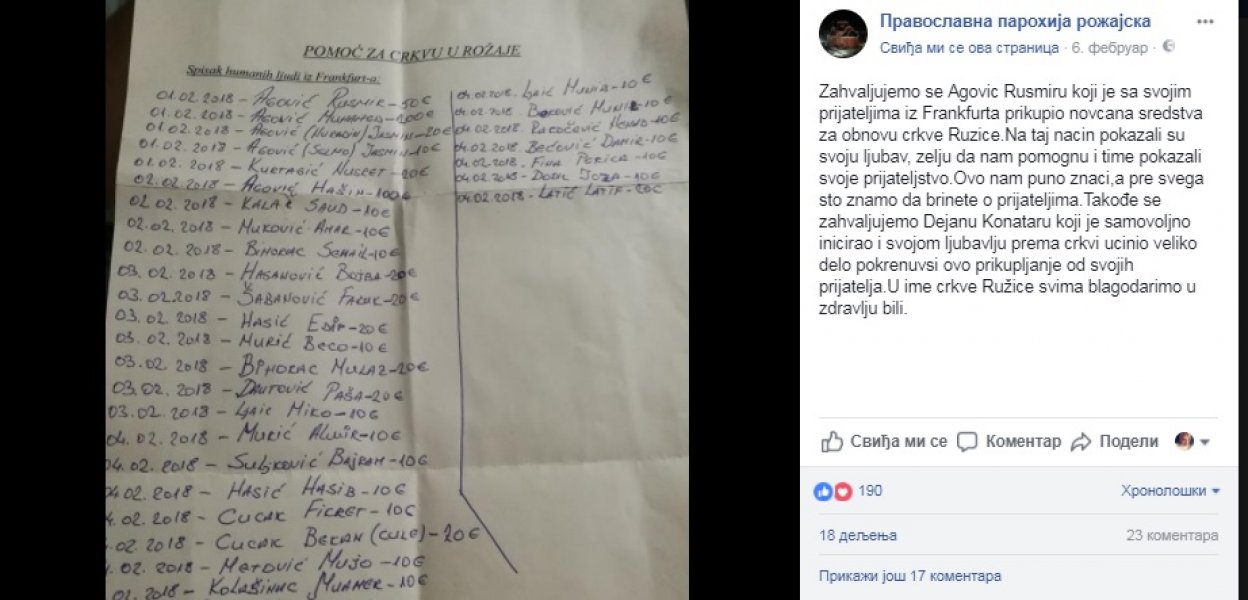 POMOĆ ZA CRKVU U ROŽAJE
Spisak humanih ljudi iz Frankfurt-a:
01.02.2018 - AGOVIĆ RUSMIR - 50€
01.02.2018 - AGOVIĆ MUHAMED - 200€
01.02.2018 - AGOVIĆ (NURADIN) JASMIN - 20€
01.02.2018 - AGOVIĆ (SELMO) JASMIN - 10€
01.02.2018 - KURTAGIĆ NUSRET - 20€
02.02.2018 - AGOVIĆ HAŠIM - 100€
02.02.2018 - KALAČ SAUD - 10€
02.02.2018 - MUKOVIĆ AMAR - 10€
02.02.2018 - BIHORAC SEMAIL - 10€
03.02.2018 - HASANOVIĆ BOJBA - 20€
03.02.2018 - ŠABANOVIĆ FARUK - 20€
03.02.2018 - HASIĆ EDIP - 20€
03.02.2018 - MURIĆ BECO - 10€
03.02.2018 - BIHORAC MULAZ - 20€
03.02.2018 - DAUTOVIĆ PAŠA - 20€
03.02.2018 - LJAIC MIKO - 10€
04.02.2018 - MURIĆ ALMIR - 10€
04.02.2018 - SULJKOVIĆ BAJRAM - 10€
04.02.2018 - HASIĆ HASIB - 10€
4.02.2018 - CUCAK FICRET - 10€
.02.2018 - CUCAK BEKAN (CULE) - 20€
.02.2018 - METOVIĆ MUJO - 10€
.02.2018 - KOLAŠINAC MUAMER - 10€
04.02.2018. LJAIĆ MUNIR - 10€
04.02.2018 MUNIR - 10€
04.02.2018 - RAKOČEVIĆ NENAD - 10€
04.02.2018 BEĆOVIĆ DAMIR - 10€
04.02.2018. FIHA PERICA - 10€
04.02.2018 - JOZA - 10€
04.02.2018 - LATIĆ LATIF - 20€
Православна парохија рожајска
Свиђа ми се ова страница · 6. фебруар ·
Zahvaljujemo se Agovic Rusmiru koji je sa svojim
prijateljima iz Frankfurta prikupio novcana sredstva
za obnovu crkve Ruzice.Na taj nacin pokazali su
svoju ljubav, zelju da nam pomognu i time pokazali
svoje prijateljstvo.Ovo nam puno znaci,a pre svega
sto znamo da brinete o prijateljima.Takođe se
zahvaljujemo Dejanu Konataru koji je samovoljno
inicirao i svojom ljubavlju prema crkvi ucinio veliko
delo pokrenuvsi ovo prikupljanje od svojih
prijatelja.U ime crkve Ružice svima blagodarimo u
zdravlju bili.
Свиђа ми се Коментар Подели
190 Хронолошки
18 дељења 23 коментара
Прикажи још 17 коментара